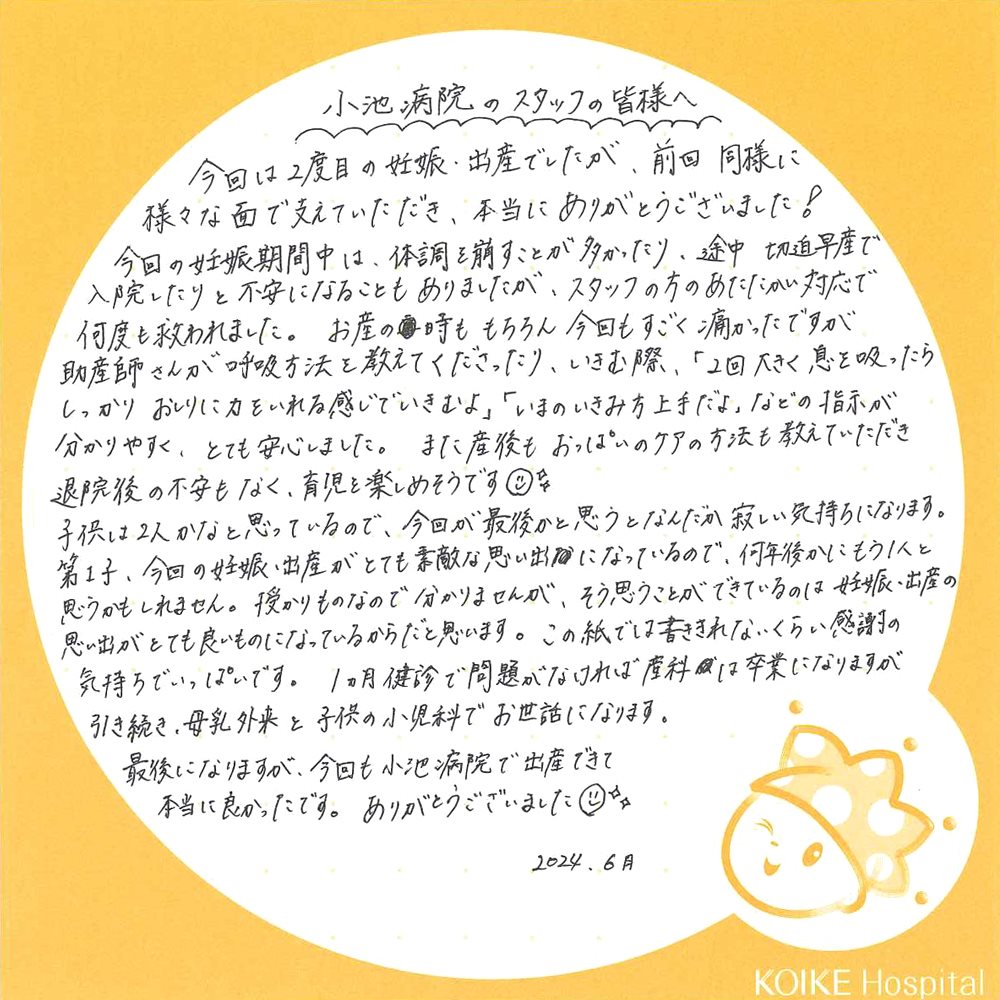 小池病院のスタッフの皆様へ
今回は2度目の妊娠・出産でしたが、前回同様に
様々な面で支えていただき、本当にありがとうございました!
今回の妊娠期間中は、体調を崩すことが多かったり、途中 切迫早産で
入院したりと不安になることもありましたが、スタッフの方のあたたかい対応で
何度も救われました。 お産の時ももちろん今回もすごく痛かったですが
助産師さんが呼吸方法を教えてくださったり、いきむ際、「2回大きく息を吸ったら
しっかりおしりに力をいれる感じでいきむよ」「いまのいきみ方上手だよ」などの指示が
分かりやすく、とても安心しました。 また産後もおっぱいのケアの方法も教えていただき
退院後の不安もなく、育児を楽しめそうです
子供は2人かなと思っているので、今回が最後かと思うとなんだか寂しい気持ちになります。
第1子、今回の妊娠・出産がとても素敵な思い出になっているので、何年後かにもう1人と
思うかもしれません。授かりものなので分かりませんが、そう思うことができているのは妊娠・出産の
思い出がとても良いものになっているからだと思います。この紙では書ききれないくらい感謝の
気持ちでいっぱいです。 1ヵ月健診で問題がなければ産科は卒業になりますが
引き続き、母乳外来と子供の小児科でお世話になります。
最後になりますが、今回も小池病院で出産できて
本当に良かったです。ありがとうございました
2024.6月
KOIKE Hospital